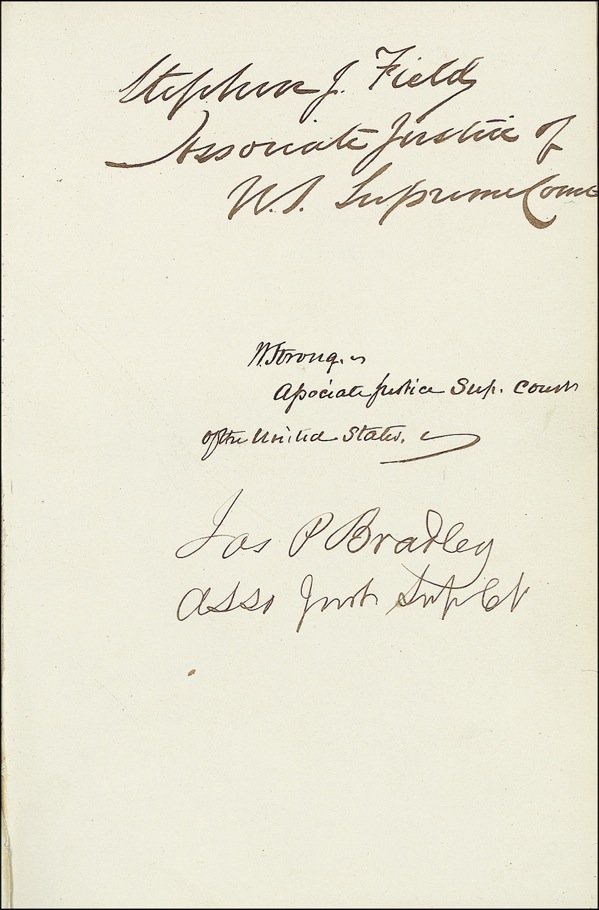 Stephen J. Field
Associate Justice of
U.S. Supreme Court
W. Strong.
Associate Justice Sup. Court
of the United States.
Jos P Bradley
Asso Just Sup Ct